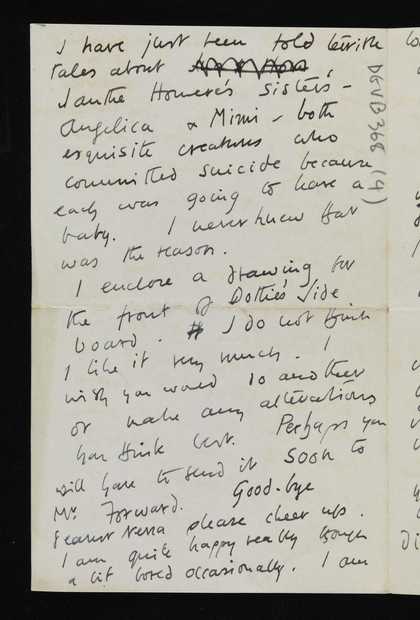 I have just been told terrible
tales about
Ianthe Homere's sisters -
Angelica & Mimi - both
exquisite creatures who
committed suicide because
each was going to have a
baby. I never knew that
was the reason.
I enclose a drawing for
the front of Dottie's side
board. I do not think
I like it very much. I
wish you would do another
or make any alterations
you think best. Perhaps you
will have to send it soon to
Mr Forward. Good-bye
dearest Nessa please cheer up.
I am quite happy really though
a bit bored occasionally. I am
DGVB368 (4)